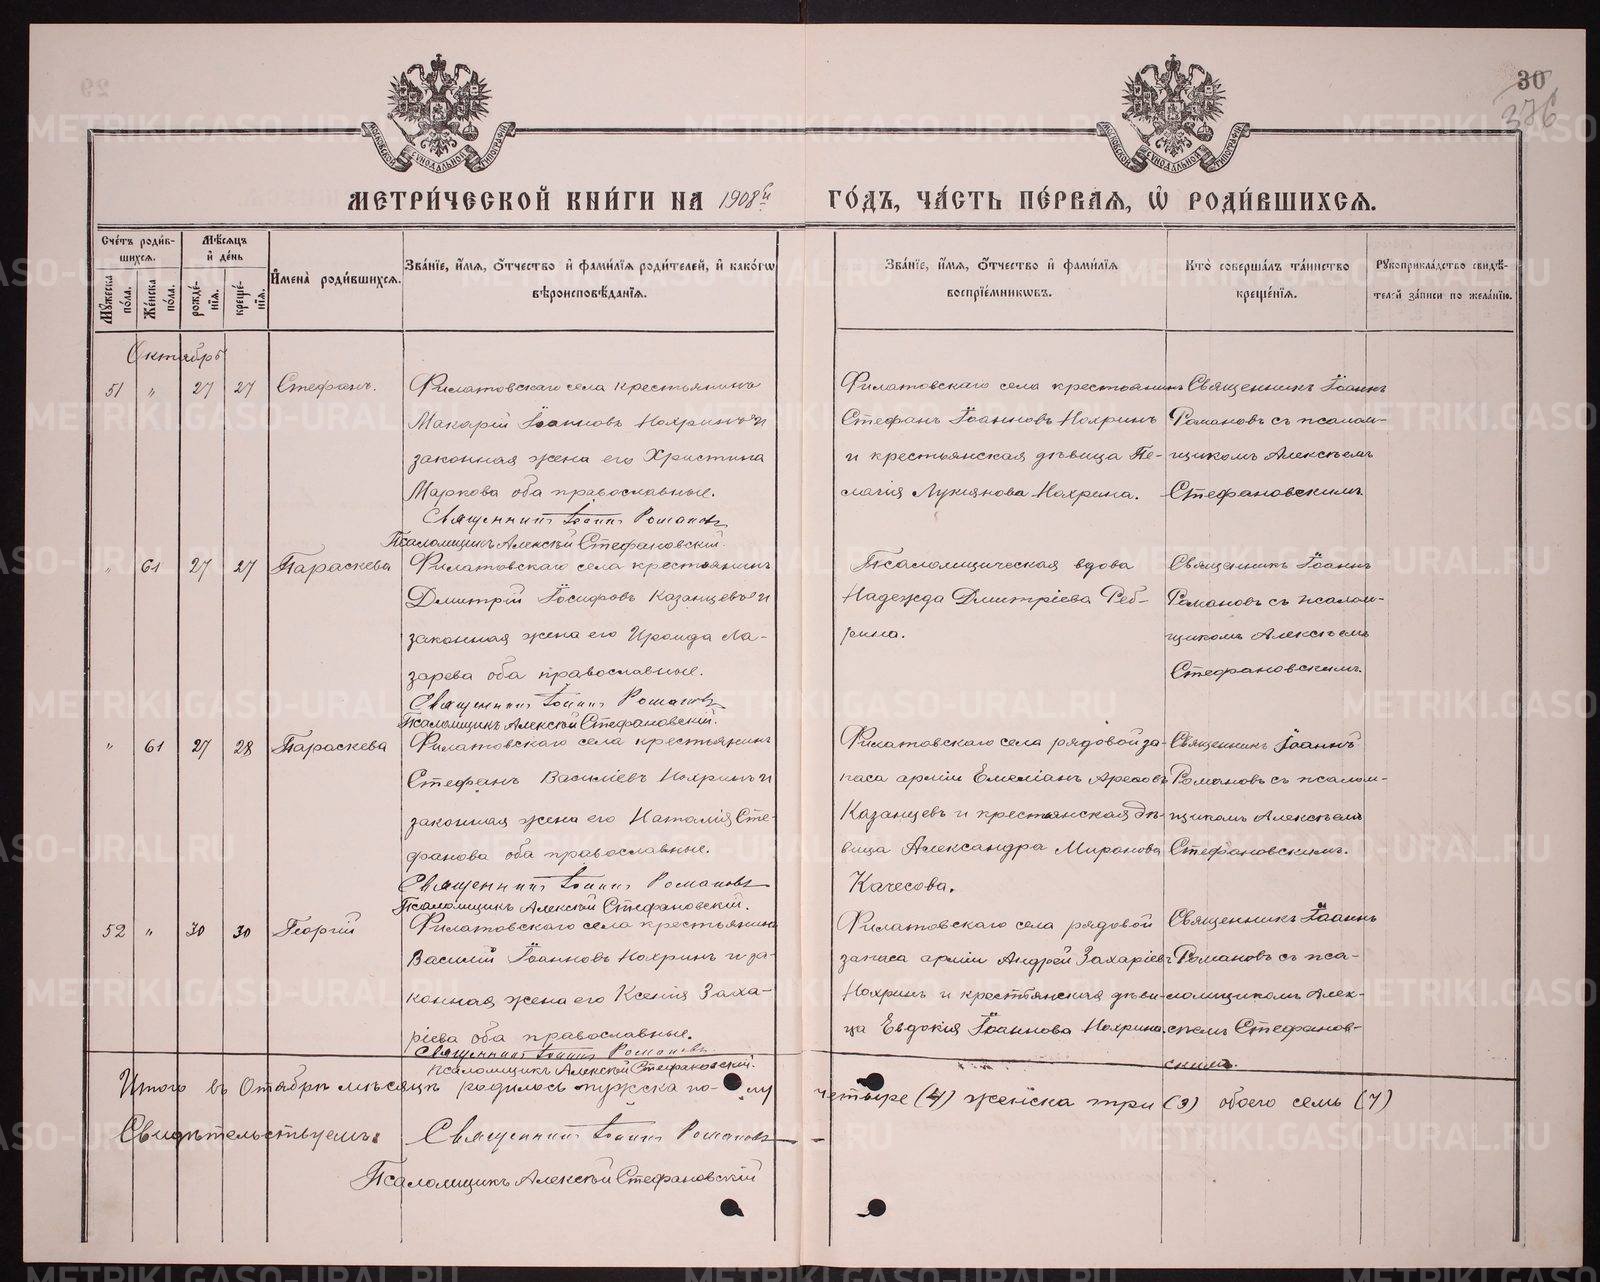 30
376
МОСКОВСКОЙ СУНОДАЛЬНОЙ ТИПОГРАФІИ
МОСКОВСКОЙ СУНОДАЛЬНОЙ ТИПОГРАФІИ
МЕТРИ́ЧЕСКОЙ КНИ́ГИ НА 1908й ГО́ДЪ, ЧА́СТЬ ПЕ́РВАѦ, Ѽ РОДИ́ВШИХСѦ.
Сче́тъ роди́вшихсѧ.
Мꙋ́жеска по́ла.
Же́нска по́ла.
Мѣ́сѧцъ и де́нь
рожде́нїѧ.
креще́нїѧ.
И҆мена̀ роди́вшихсѧ.
Зва́нїе, и҆́мѧ, ѻ҆́тчество и҆ фами́лїѧ роди́телей, и҆ како́гѡ
вѣроисповѣ́данїѧ.
Зва́нїе, и҆́мѧ, ѻ҆́тчество и҆ фами́лїѧ
воспрїе́мниковъ.
Кто̀ соверша́лъ та́инство
креще́нїѧ.
Рꙋкоприкла́дство свидѣ́-
телей за́писи по жела́нїю.
Октябрь
51 " 27 27 Стефанъ.
Филатовскаго села крестьянинъ
Макарій Іоанновъ Нохринъ и
законная жена его Христина
Маркова оба православные.
Священникъ Іоаннъ Романовъ
Псаломщикъ Алексѣй Стефановскій.
Филатовскаго села крестьянинъ
Стефанъ Іоанновъ Нохринъ
и крестьянская дѣвица Пе-
лагія Лукіянова Нохрина.
Священникъ Іоаннъ
Романовъ съ псалом-
щикомъ Алексѣемъ
Стефановскимъ.
" 61 27 27 Параскева
Филатовскаго села крестьянинъ
Дмитрій Іосифовъ Казанцевъ и
законная жена его Ираида Ла-
зарева оба православные.
Священникъ Іоаннъ Романовъ
Псаломщикъ Алексѣй Стефановскій.
Псаломщическая вдова
Надежда Дмитріева Реб-
рина.
Священникъ Іоаннъ
Романовъ съ псалом-
щикомъ Алексѣемъ
Стефановскимъ.
" 61 27 28 Параскева
Филатовскаго села крестьянинъ
Стефанъ Василіевъ Нохринъ и
законная жена его Наталія Сте-
фанова оба православные.
Священникъ Іоаннъ Романовъ
Псаломщикъ Алексѣй Стефановскій.
Филатовскаго села рядовой за-
паса арміи Емеліанъ
Казанцевъ и крестьянская дѣ-
вица Александра Миронова
Качесова.
Священникъ Іоаннъ
Романовъ съ псалом-
щикомъ Алексѣемъ
Стефановскимъ.
52 " 30 30 Георгій
Филатовскаго села крестьянинъ
Василій Іоанновъ Нохринъ и за-
конная жена его Ксенія Заха-
ріева оба православные.
Священникъ Іоаннъ Романовъ
Псаломщикъ Алексѣй Стефановскій.
Филатовскаго села рядовой
запаса арміи Андрей Захаріевъ
Нохринъ и крестьянская дѣви-
ца Евдокія Іоаннова Нохрина.
Священникъ Іоаннъ
Романовъ съ пса-
ломщикомъ Алек-
сѣемъ Стефанов-
скимъ.
Итого въ Октябрѣ мѣсяцѣ родилось мужска полу четыре (4) женска три (3) обоего семь (7)
Свидѣтельствуемъ: Священникъ Іоаннъ Романовъ
Псаломщикъ Алексѣй Стефановскій
METRIKI.GASO-URAL.RU